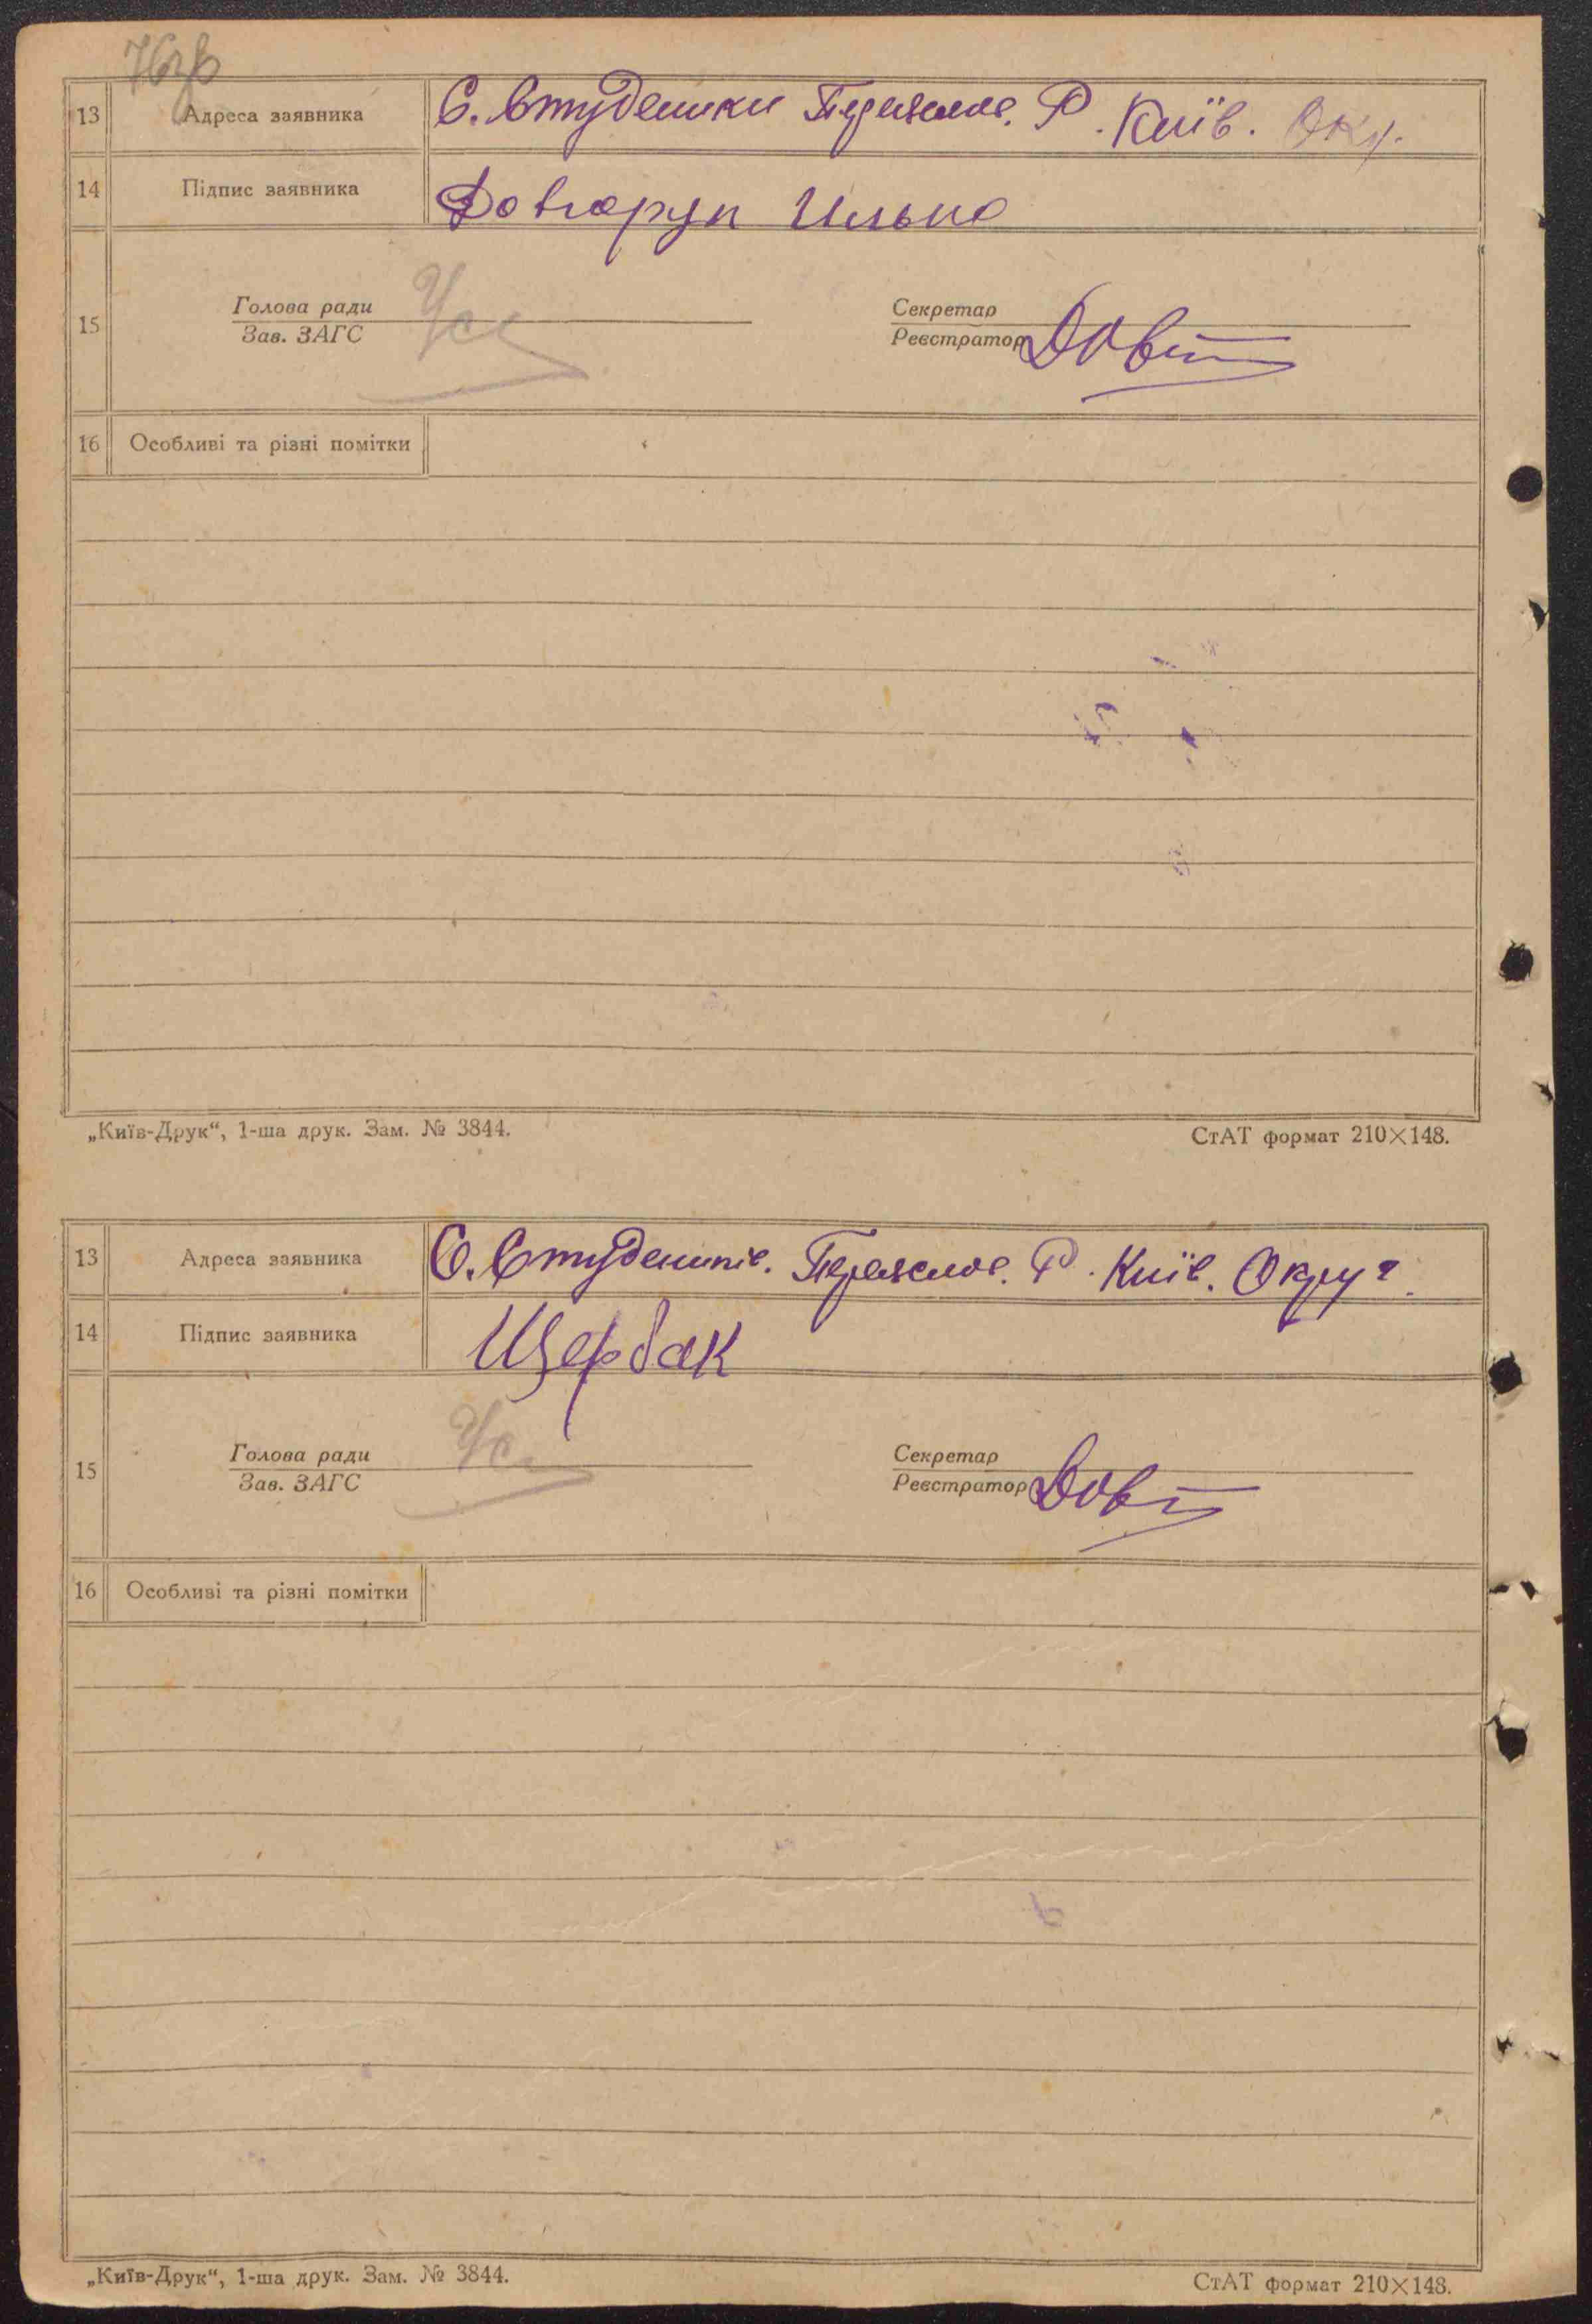 76зв
13 Адреса заявника С. Студеники Переяслов. Р. Київ. Окр.
14 Підпис заявника Довгорук Илько
15 Голова ради Секретар
Зав. ЗАГС Ус Реєстратор Довг
16 Особливі та різні помітки
„Київ-Друк“, 1-ша друк. Зам. № 3844. СтАТ формат 210×148.
13 Адреса заявника С. Студеників. Переяслов. Р. Київ. Округ.
14 Підпис заявника Щербак
15 Голова ради Секретар
Зав. ЗАГС Ус Реєстратор Довг
16 Особливі та різні помітки
„Київ-Друк“, 1-ша друк. Зам. № 3844. СтАТ формат 210×148.